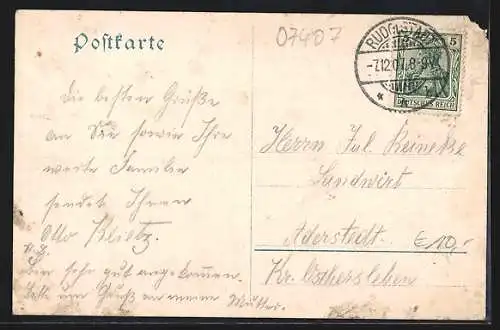 Postkarte
07407
RUDOLSTADT
-7.12.07. 8-9V.
5
DEUTSCHES REICH
Die besten Grüße
an Sie sowie Ihre
werte Familie
sendet Ihnen
Otto Klietz.
N.B.
Bin sehr gut angekommen.
Bitte um Gruß an meine Mutter.
Herrn Jul. Reineke
Landwirt
Aderstedt.
€10,-
Kr. Oschersleben